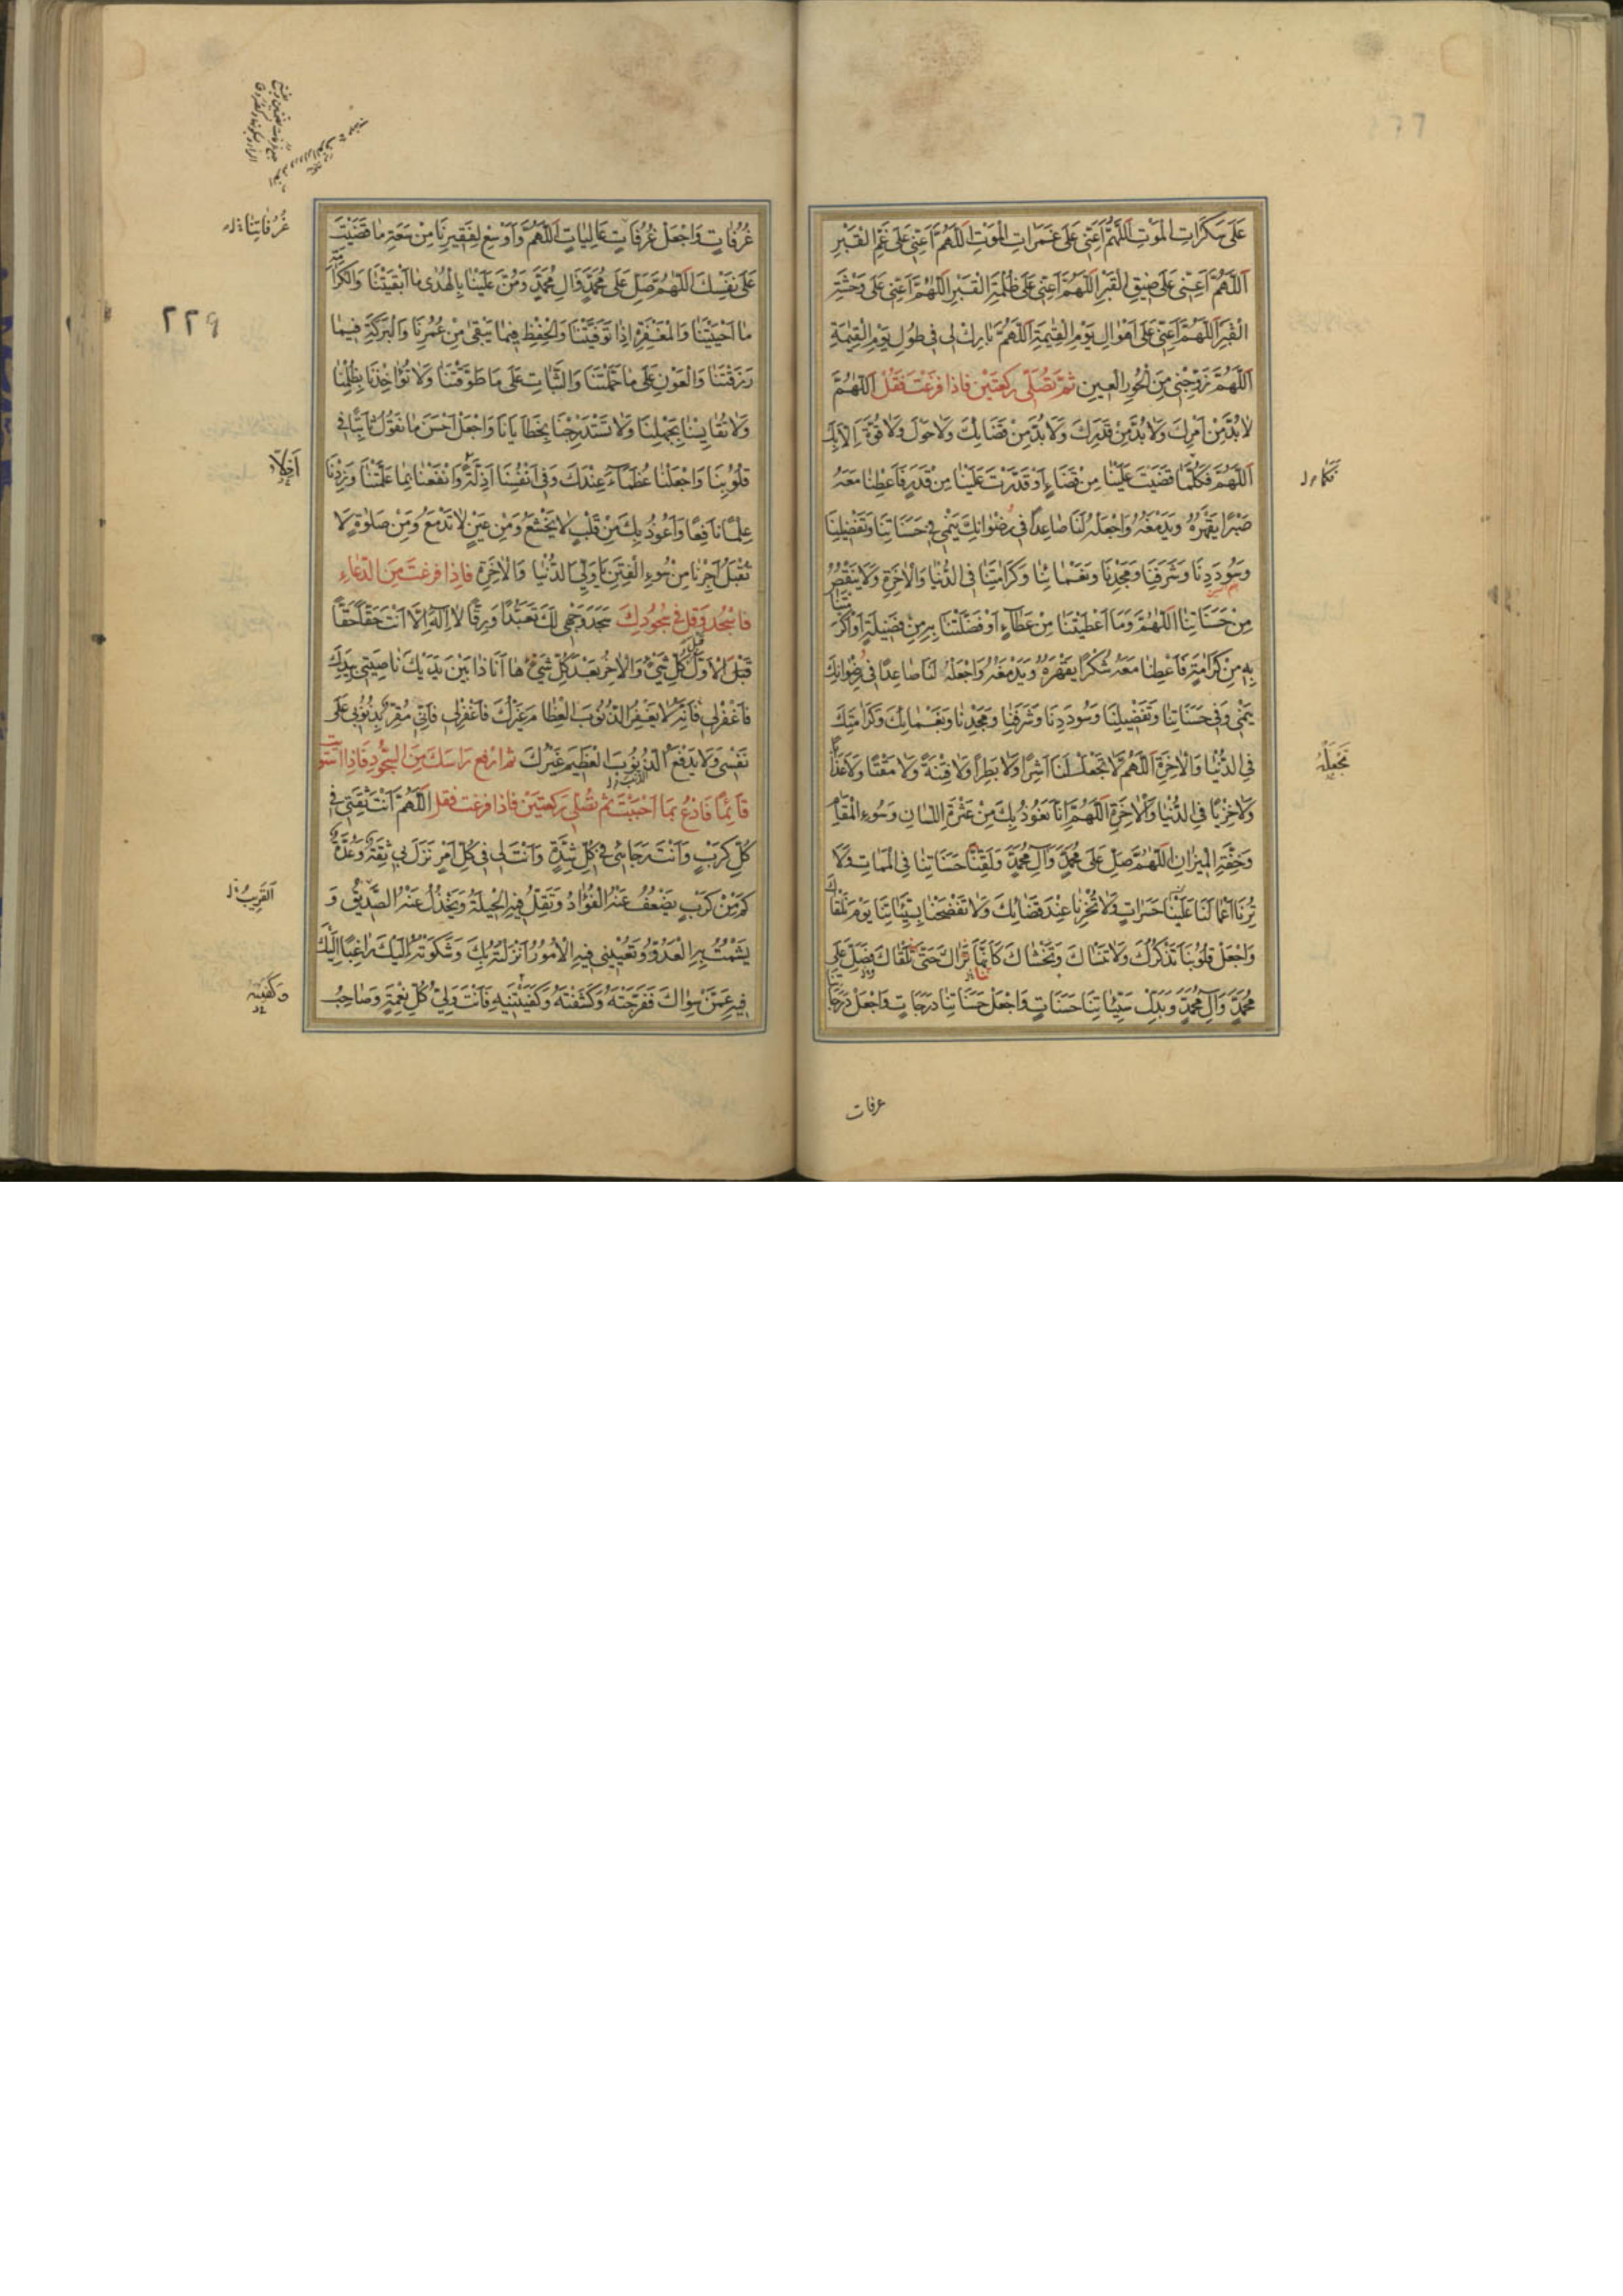 عَلَى سَكَرَاتِ الْمَوْتِ اَللّٰهُمَّ اَعِنّى عَلَى غَمَرَاتِ الْمَوْتِ اَللّٰهُمَّ اَعِنّى عَلَى غَمِّ الْقَبْرِ
اَللّٰهُمَّ اَعِنّى عَلَى ضِيقِ الْقَبْرِ اَللّٰهُمَّ اَعِنّى عَلَى ظُلْمَةِ الْقَبْرِ اَللّٰهُمَّ اَعِنّى عَلَى وَحْشَةِ
الْقَبْرِ اَللّٰهُمَّ اَعِنّى عَلَى اَهْوَالِ يَوْمِ الْقِيٰمَةِ اَللّٰهُمَّ بَارِكْ لى فى طُولِ يَوْمِ الْقِيٰمَةِ
اَللّٰهُمَّ زَوِّجْنى مِنَ الْحُورِ الْعِينِ ثُمَّ تُصَلّى رَكْعَتَيْنِ فَاذَا فَرَغْتَ فَقُلْ اَللّٰهُمَّ
لَابُدَّ مِنْ اَمْرِكَ وَلَا بُدَّ مِنْ قَدَرِكَ وَلَا بُدَّ مِنْ قَضَائِكَ وَلَا حَوْلَ وَلَا قُوَّةَ اِلَّا بِكَ
اَللّٰهُمَّ فَكُلَّمَا قَضَيْتَ عَلَيْنَا مِنْ قَضَاءٍ اَوْ قَدَّرْتَ عَلَيْنَا مِنْ قَدَرٍ فَاَعْطِنَا مَعَهُ
صَبْرًا يَقْهَرُهُ وَيَدْمَغُهُ وَاجْعَلْهُ لَنَا صَاعِدًا فى رِضْوَانِكَ يَنْمى فى حَسَنَاتِنَا وَتَفْضيلِنَا
وَسُودَدِنَا وَشَرَفِنَا وَمَجْدِنَا وَنَعْمَائِنَا وَكَرَامَتِنَا فى الدُّنْيَا وَالْاٰخِرَةِ وَلَا يَنْقُصُ
مِنْ حَسَنَاتِنَا اَللّٰهُمَّ وَمَا اَعْطَيْتَنَا مِنْ عَطَاءٍ اَوْ فَضَّلْتَنَا بِهِ مِنْ فَضيلَةٍ اَوْ اَكْرَمْتَنَا
بِهِ مِنْ كَرَامَةٍ فَاَعْطِنَا مَعَهُ شُكْرًا يَقْهَرُهُ وَيَدْمَغُهُ وَاجْعَلْهُ لَنَا صَاعِدًا فى رِضْوَانِكَ
يَنْمى وَفى حَسَنَاتِنَا وَتَفْضيلِنَا وَسُودَدِنَا وَشَرَفِنَا وَمَجْدِنَا وَنَعْمَائِكَ وَكَرَامَتِكَ
فى الدُّنْيَا وَالْاٰخِرَةِ اَللّٰهُمَّ لَا تَجْعَلْ لَنَا اَشَرًا وَلَا بَطَرًا وَلَا فِتْنَةً وَلَا مَقْتًا وَلَا عَذَابًا
وَلَا خِزْيًا فى الدُّنْيَا وَالْاٰخِرَةِ اَللّٰهُمَّ اِنَّا نَعُوذُ بِكَ مِنْ عَثْرَةِ اللِّسَانِ وَسُوءِ الْمَقَامِ
وَخِفَّةِ الْمِيزَانِ اَللّٰهُمَّ صَلِّ عَلَى مُحَمَّدٍ وَآلِ مُحَمَّدٍ وَلَقِّنَا حَسَنَاتِنَا فى الْمَمَاتِ وَلَا
تُرِنَا اَعْمَالَنَا عَلَيْنَا حَسَرَاتٍ وَلَا تُخْزِنَا عِنْدَ قَضَائِكَ وَلَا تَفْضَحْنَا بِسَيِّئَاتِنَا يَوْمَ نَلْقَاكَ
وَاجْعَلْ قُلُوبَنَا تَذْكُرُكَ وَلَا تَنْسَاكَ وَتَخْشَاكَ كَاَنَّمَا تَرَاكَ حَتّٰى نَلْقَاكَ وَصَلِّ عَلَى
مُحَمَّدٍ وَآلِ مُحَمَّدٍ وَبَدِّلْ سَيِّئَاتِنَا حَسَنَاتٍ وَاجْعَلْ حَسَنَاتِنَا دَرَجَاتٍ وَاجْعَلْ دَرَجَاتِنَا
غرفات
نَجْعَلْهُ
غُرُفَاتٍ وَاجْعَلْ غُرُفَاتٍ عَالِيَاتٍ اَللّٰهُمَّ وَاَوْسِعْ لِفَقيرِنَا مِنْ سَعَةِ مَا قَضَيْتَ
عَلَى نَفْسِكَ اَللّٰهُمَّ صَلِّ عَلَى مُحَمَّدٍ وَآلِ مُحَمَّدٍ وَمُنَّ عَلَيْنَا بِالْهُدٰى مَا اَبْقَيْتَنَا وَالْكَرَامَةِ
مَا اَحْيَيْتَنَا وَالْمَغْفِرَةِ اِذَا تَوَفَّيْتَنَا وَالْحِفْظِ فيمَا يَبْقٰى مِنْ عُمُرِنَا وَالْبَرَكَةِ فيمَا
رَزَقْتَنَا وَالْعَوْنِ عَلَى مَا حَمَّلْتَنَا وَالثَّبَاتِ عَلَى مَا طَوَّقْتَنَا وَلَا تُؤَاخِذْنَا بِظُلْمِنَا
وَلَا تُقَايِسْنَا بِجَهْلِنَا وَلَا تَسْتَدْرِجْنَا بِخَطَايَانَا وَاجْعَلْ اَحْسَنَ مَا نَقُولُ ثَابِتًا فى
قُلُوبِنَا وَاجْعَلْنَا عُظَمَاءَ عِنْدَكَ وَفى اَنْفُسِنَا اَذِلَّةً وَانْفَعْنَا بِمَا عَلَّمْتَنَا وَزِدْنَا
عِلْمًا نَافِعًا وَاَعُوذُ بِكَ مِنْ قَلْبٍ لَا يَخْشَعُ وَمِنْ عَيْنٍ لَا تَدْمَعُ وَمِنْ صَلٰوةٍ لَا
تُقْبَلُ اَجِرْنَا مِنْ سُوءِ الْفِتَنِ يَا وَلِىَّ الدُّنْيَا وَالْاٰخِرَةِ فَاِذَا فَرَغْتَ مِنَ الدُّعَاءِ
فَاسْجُدْ وَقُلْ فى سُجُودِكَ سَجَدَ وَجْهى لَكَ تَعَبُّدًا وَرِقًّا لَا اِلٰهَ اِلَّا اَنْتَ حَقًّا حَقًّا
الْاَوَّلُ قَبْلَ كُلِّ شَىْءٍ وَالْاٰخِرُ بَعْدَ كُلِّ شَىْءٍ هَا اَنَا ذَا بَيْنَ يَدَيْكَ نَاصِيَتى بِيَدِكَ
فَاغْفِرْ لى فَاِنَّهُ لَا يَغْفِرُ الذُّنُوبَ الْعِظَامَ غَيْرُكَ فَاغْفِرْ لى فَاِنّى مُقِرٌّ بِذُنُوبى عَلَى
نَفْسى وَلَا يَدْفَعُ الذُّنُوبَ الْعَظيمَ غَيْرُكَ ثُمَّ ارْفَعْ رَاْسَكَ مِنَ السُّجُودِ فَاِذَا اسْتَوَيْتَ
قَائِمًا فَادْعُ بِمَا اَحْبَبْتَ ثُمَّ تُصَلّى رَكْعَتَيْنِ فَاِذَا فَرَغْتَ فَقُلْ اَللّٰهُمَّ اَنْتَ ثِقَتى فى
كُلِّ كَرْبٍ وَاَنْتَ رَجَائى فى كُلِّ شِدَّةٍ وَاَنْتَ لى فى كُلِّ اَمْرٍ نَزَلَ بى ثِقَةٌ وَعُدَّةٌ
كَمْ مِنْ كَرْبٍ يَضْعُفُ عَنْهُ الْفُؤَادُ وَتَقِلُّ فيهِ الْحيلَةُ وَيَخْذُلُ عَنْهُ الصَّديقُ وَ
يَشْمَتُ بِهِ الْعَدُوُّ وَتُعْيينى فيهِ الْاُمُورُ اَنْزَلْتُهُ بِكَ وَشَكَوْتُهُ اِلَيْكَ رَاغِبًا اِلَيْكَ
فيهِ عَمَّنْ سِوَاكَ فَفَرَّجْتَهُ وَكَشَفْتَهُ وَكَفَيْتَنيهِ فَاَنْتَ وَلِىُّ كُلِّ نِعْمَةٍ وَصَاحِبُ
غُرُفَاتِنَا
٢٢٩
اَلْقَريبُ
وَكَفَيْتَهُ